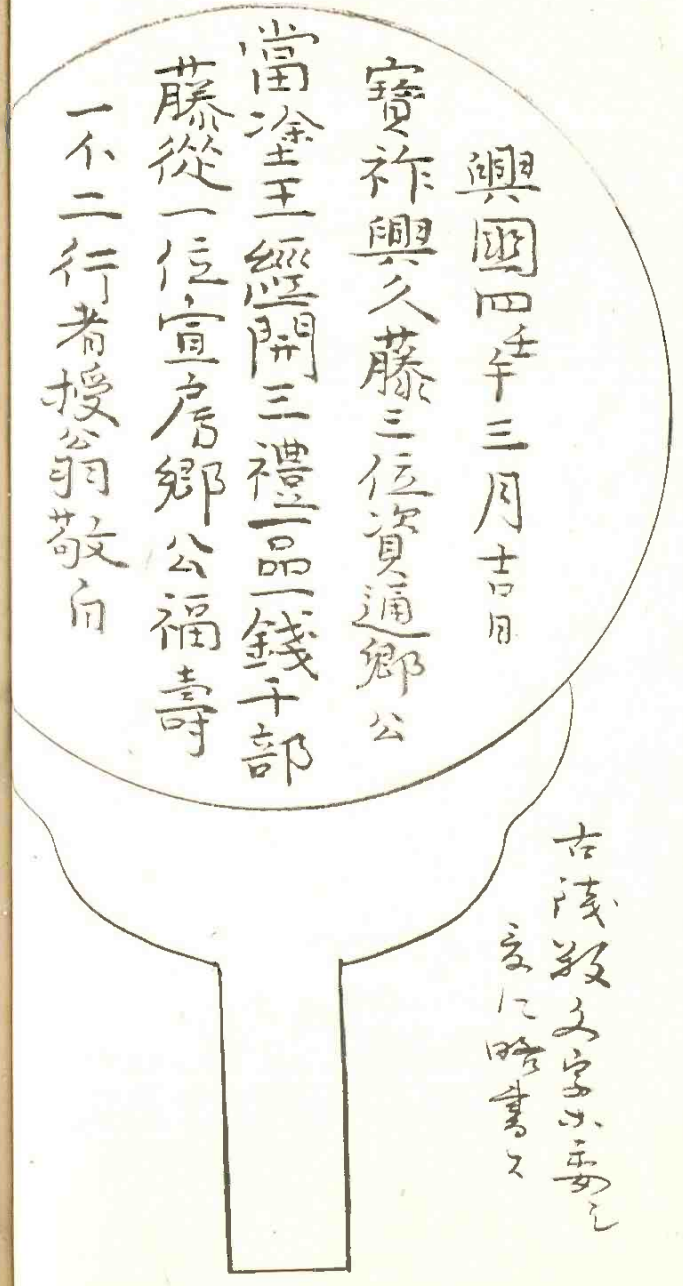 興國四壬午三月吉日
寶祚興久藤三位資通鄉公
當塗王經開三禮一品一錢千部
藤從一位宣房鄉公福壽
一不二行者授翁敬白
古 文字
爰ニ略書ス